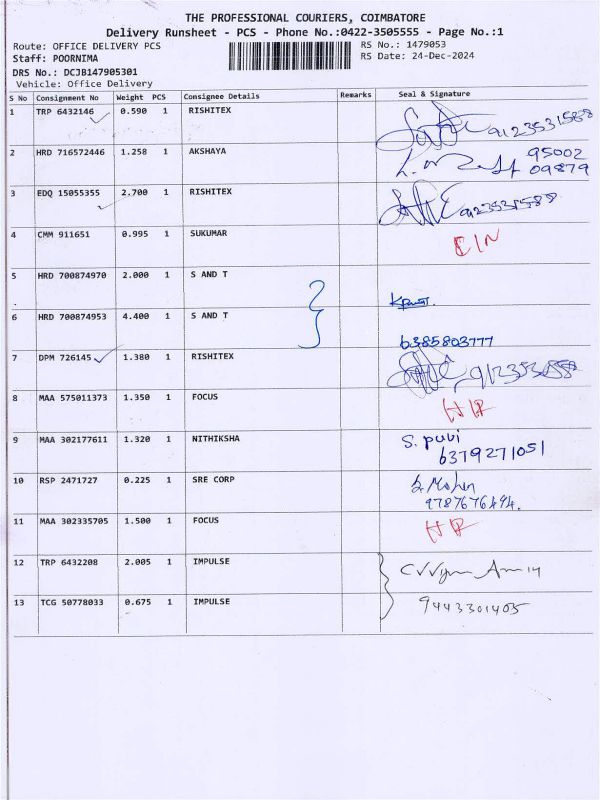 THE PROFESSIONAL COURIERS, COIMBATORE
Delivery Runsheet - PCS - Phone No.:0422-3505555 - Page No.:1
Route: OFFICE DELIVERY PCS
RS No.: 1479053
Staff: POORNIMA
RS Date: 24-Dec-2024
DRS No.: DCJB147905301
Vehicle: Office Delivery
S No Consignment No Weight PCS Consignee Details Remarks Seal & Signature
1 TRP 6432146 0.590 1 RISHITEX 9123531588
2 HRD 716572446 1.258 1 AKSHAYA 95002
09879
3 EDQ 15055355 2.700 1 RISHITEX 9123531588
4 CMM 911651 0.995 1 SUKUMAR
5 HRD 700874970 2.000 1 S AND T
6 HRD 700874953 4.400 1 S AND T 6385803777
7 DPM 726145 1.380 1 RISHITEX
8 MAA 575011373 1.350 1 FOCUS
9 MAA 302177611 1.320 1 NITHIKSHA S. puvi
6379271051
10 RSP 2471727 0.225 1 SRE CORP
9787676494.
11 MAA 302335705 1.500 1 FOCUS
12 TRP 6432208 2.005 1 IMPULSE
13 TCG 50778033 0.675 1 IMPULSE 9443301405